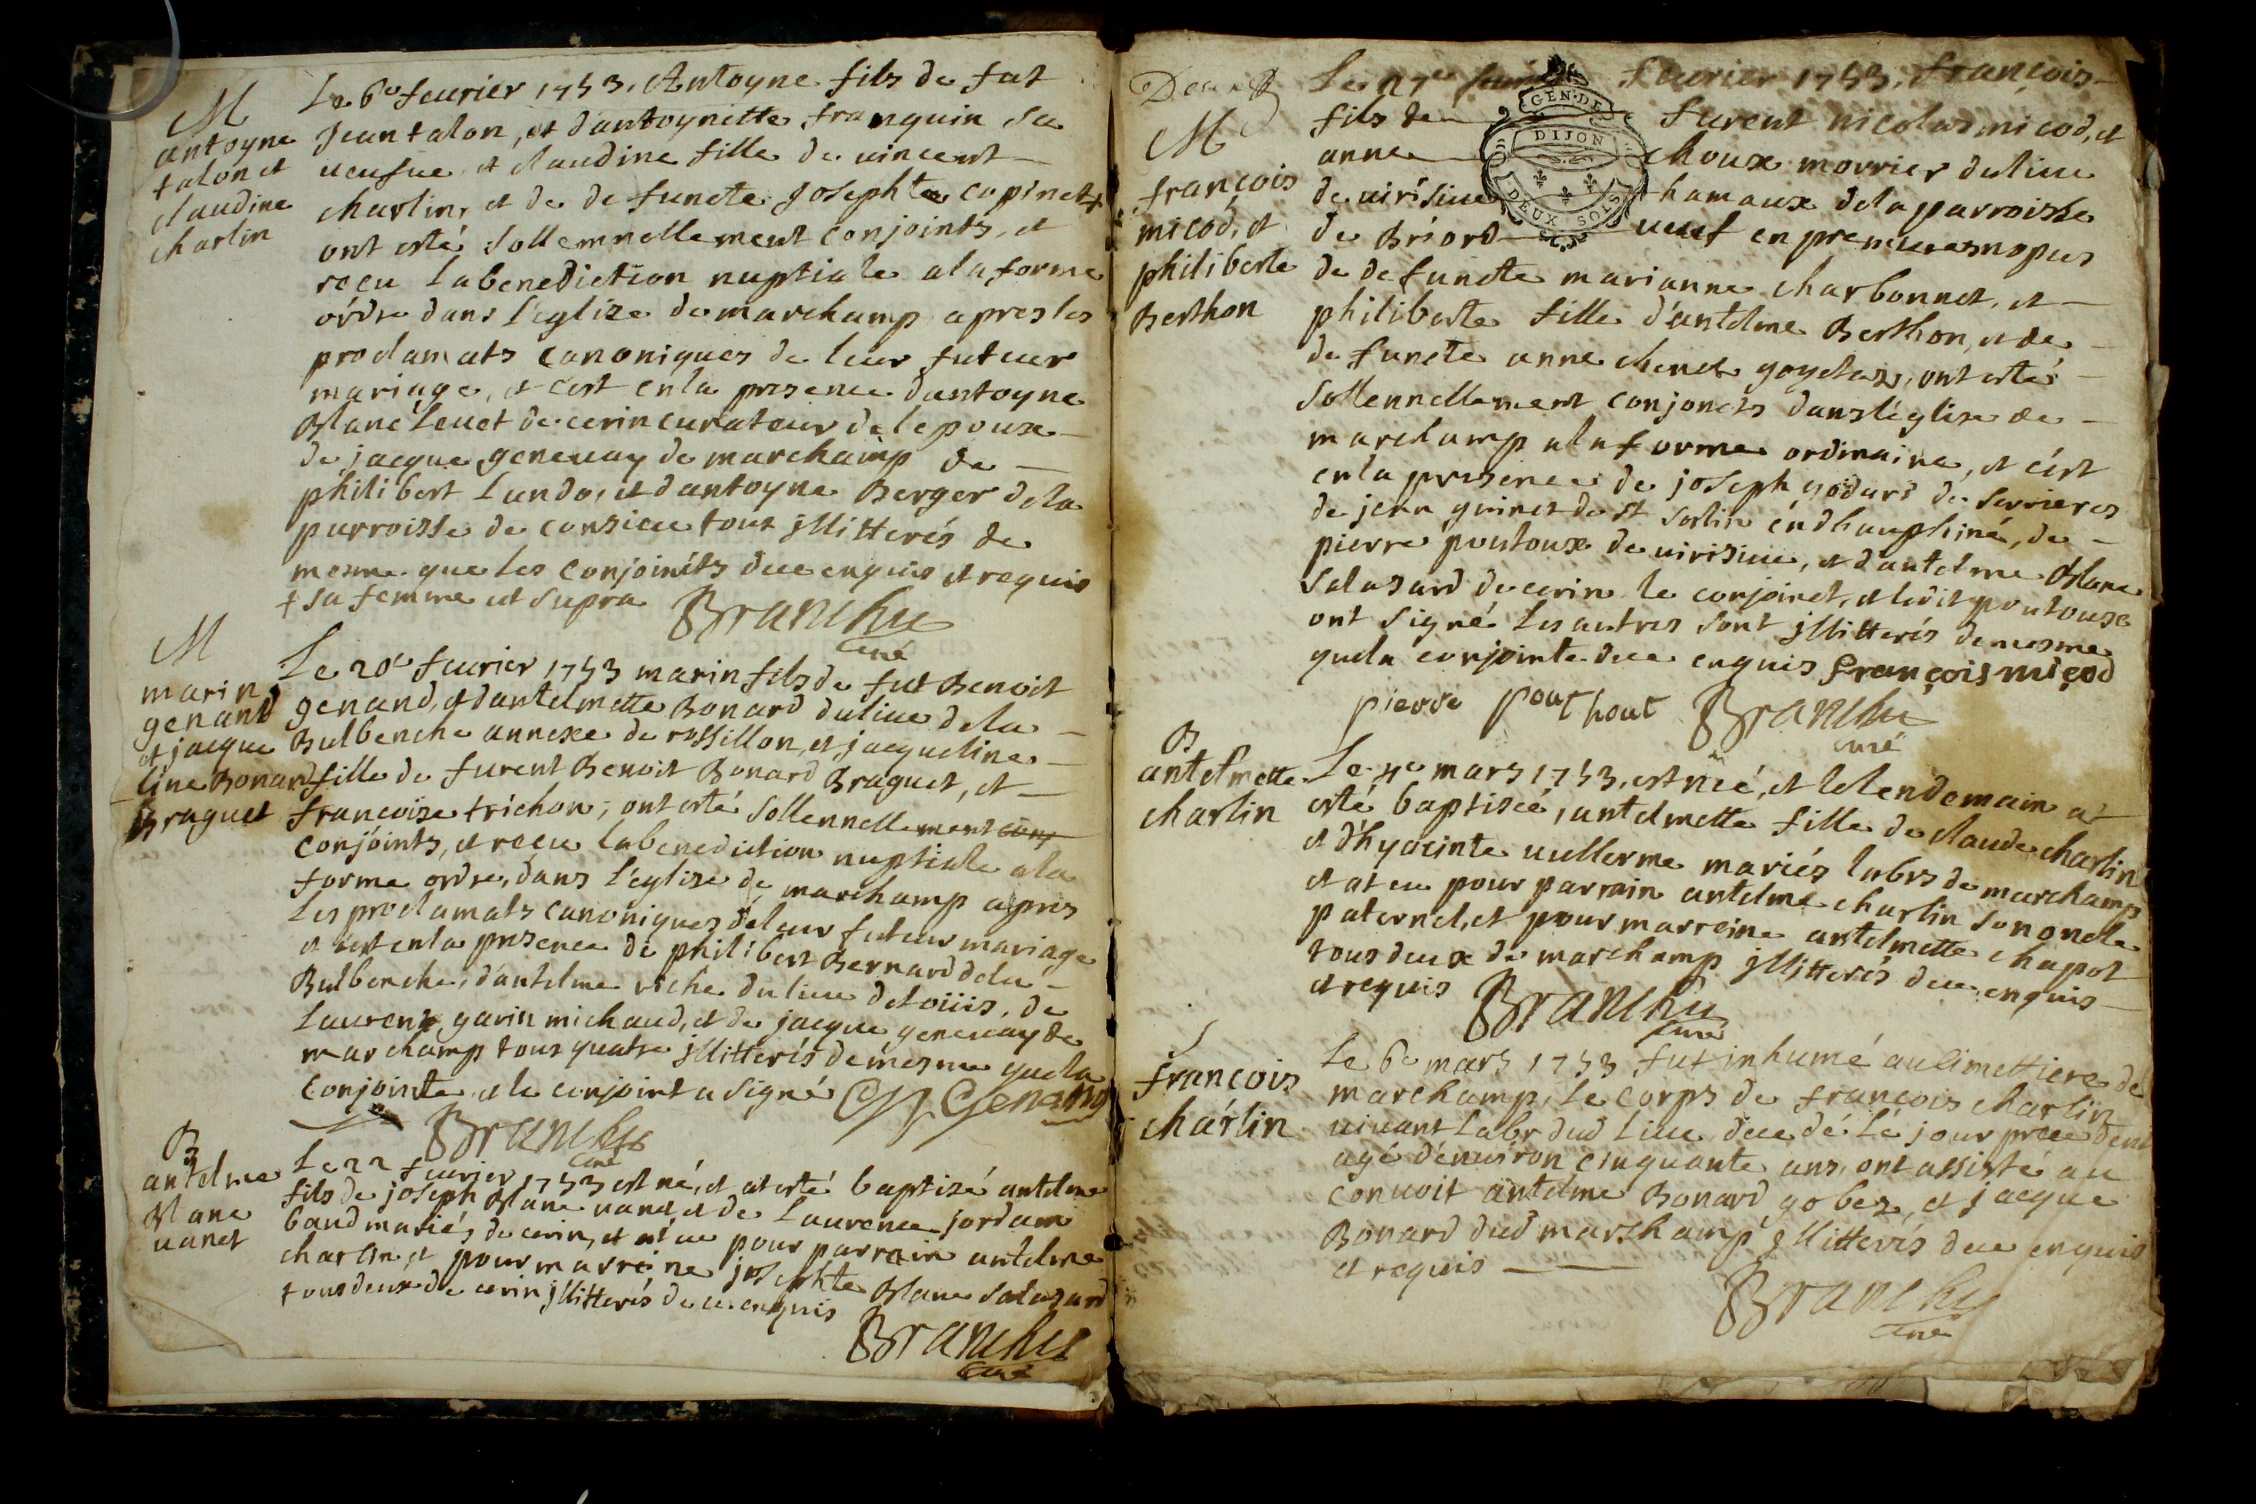 M
antoyne
talon et
claudine
charlin
Le 6e feurier 1753. Antoyne fils de fut
Jean talon, et d'antoynette franquin sa
ueufue et claudine fille de uincent
charlin, et de defuncte josephte copinet +
ont esté sollemnellement conjoints, et
reçu la benediction nuptiale a la forme
ordre dans l'eglize de marchamp apres les
proclamats canoniques de leur futeur
mariage, et c'est en la presence d'antoyne
Blanc Leuet de cerin curateur de l'epoux
de jacque geneuay de marchamp de
philibert Lundo, et d'antoyne Berger de la
parroisse de consieu tous jllitterés de
mesme que les conjoints duë enquis et requis
+ sa femme ut supra Branchu
curé
M
marin
genand
et jacque
line Bonard
Braguet
Le 20e feurier 1753 marin fils de fut Benoit
genand, et d'antelmette Bonard du lieu de la
Balbenche annexe de rossillon, et jacqueline
fille de furent Benoit Bonard Braguet, et
francoise trichon, ont esté sollennellement conj
conjoints, et reçu la benediction nuptiale a la
forme ordre, dans l'eglize de marchamp apres
les proclamats canoniques de leur futeur mariage
et c'est en la presence de philibert Bernard de la
Balbenche, d'antelme riche du lieu de loiiis, de
Laurent garin michaud, et de jacque geneuay de
marchamp tous quatre jllitterés de mesme que la
conjointe et le conjoint a signé M Genand
Branchu
curé
B
antelme
Blanc
uanet
Le 22 feurier 1753 est né, et at esté baptizé antelme
fils de joseph Blanc uanet et de Laurence jordain
baud mariés de cerin, et at eu pour parrain antelme
charlin et pour marreine josephte Blanc Salazard
tous deux de cerin jllitterés duë enquis
Branchu
curé
GEN. DE
DIJON
DEUX SOLS
M
françois
micod, et
philiberte
Berthon
Le 27e feurier 1753, François
fils de furent nicolas micod, et
anne choux mourier du lieu
de uirisieu hamaux de la parroisse
de Briord ueuf en premieres nopces
de defuncte marianne charbonnet, et
philiberte fille d'antelme Berthon, et de
defuncte anne chenet goyetaz, ont esté
sollennellement conjoncts dans l'eglize de
marchamp a la forme ordinaire, et c'est
en la presence de joseph godard de serrieres
de jean guinet de st sorlin en dhauphiné, de
pierre poutoux de uirisieu, et d'antelme Blanc
Salazard de cerin le conjoinct, et ledit poutoux
ont signé les autres sont jllitterés de mesme
que la conjointe duë enquis françois micod
pierre pouthout Branchu
curé
B
antelmette
charlin
Le 4e mars 1753, est néé, et le lendemain at
esté baptizéé, antelmette fille de claude charlin
et d'hyacinte uullerme mariés labrs de marchamp
et at eu pour parrain antelme charlin son oncle
paternel, et pour marreine antelmette chapot
tous deux de marchamp jllitterés duë enquis
et requis Branchu
curé
S
françois
charlin
Le 6e mars 1753 fut inhumé au cimettiere de
marchamp, le corps de françois charlin
uiuant labr dud lieu decedé le jour precedent
agé d'enuiron cinquante ans, ont assisté au
conuoit antelme Bonard gobez, et jacque
Bonard dud marchamp jllitterés duë enquis
et requis
Branchu
curé